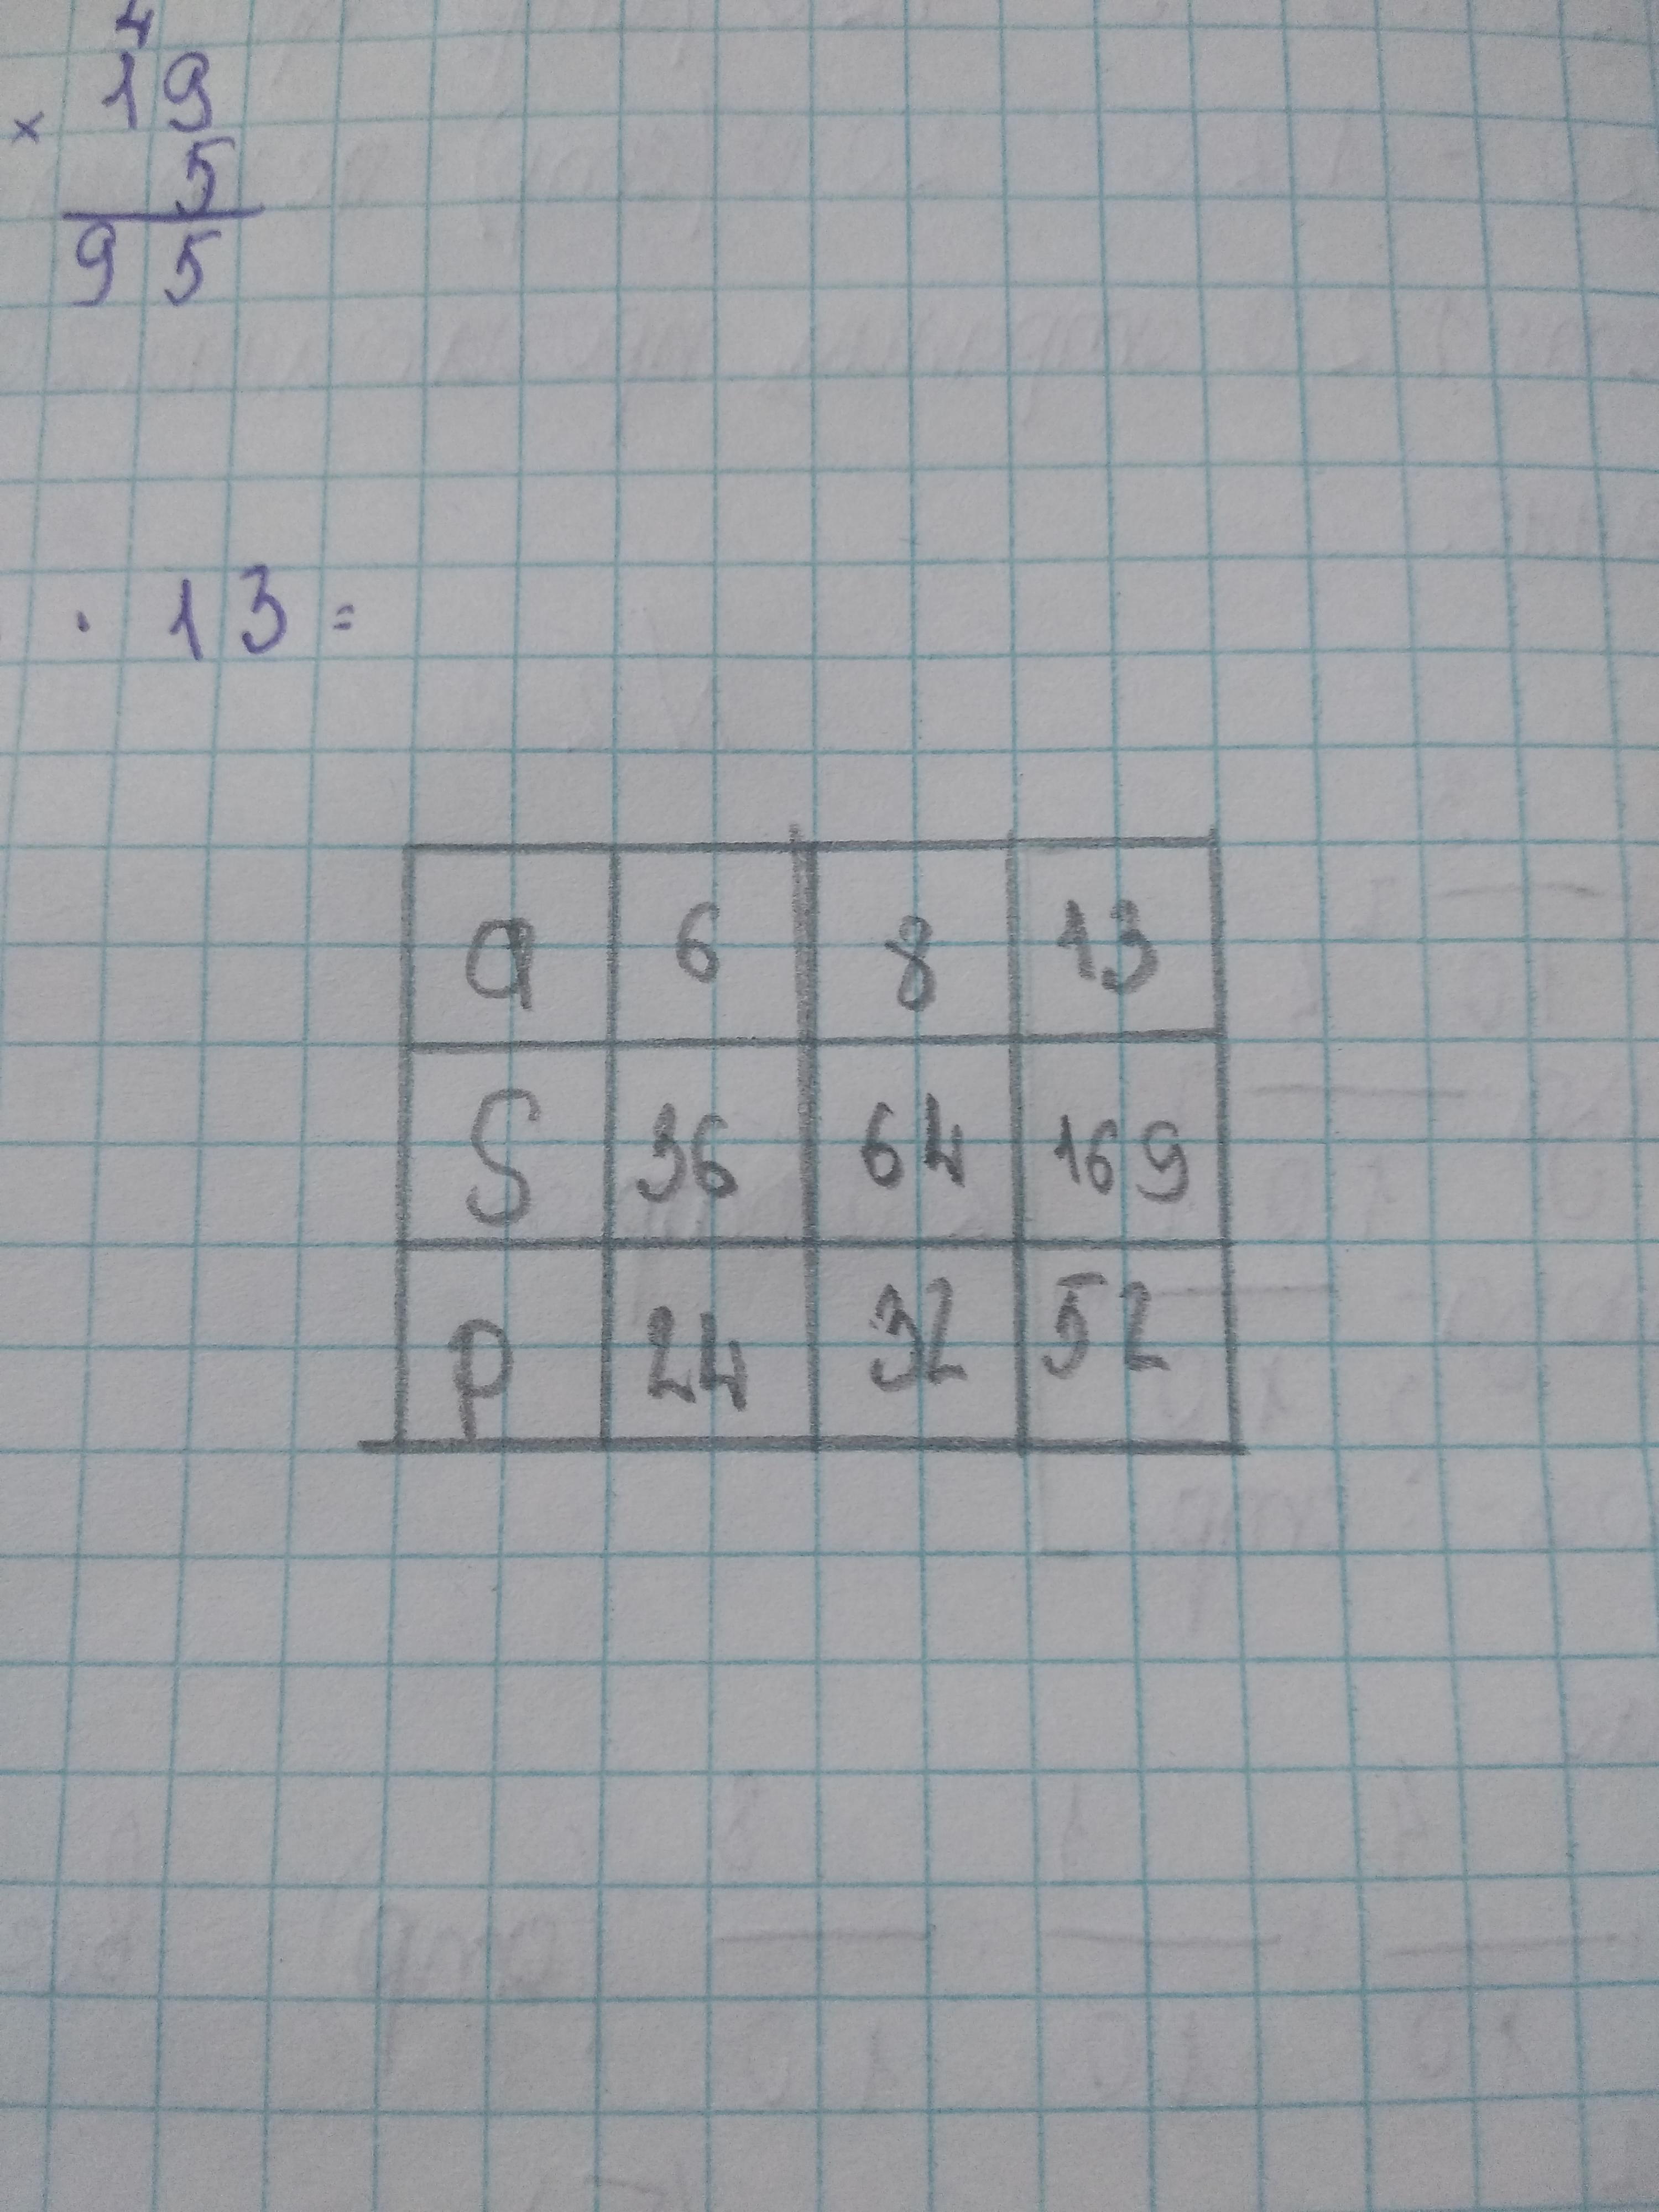 4
× 19
5
95
· 13 =
a 6 8 13
S 36 64 169
P 24 32 52